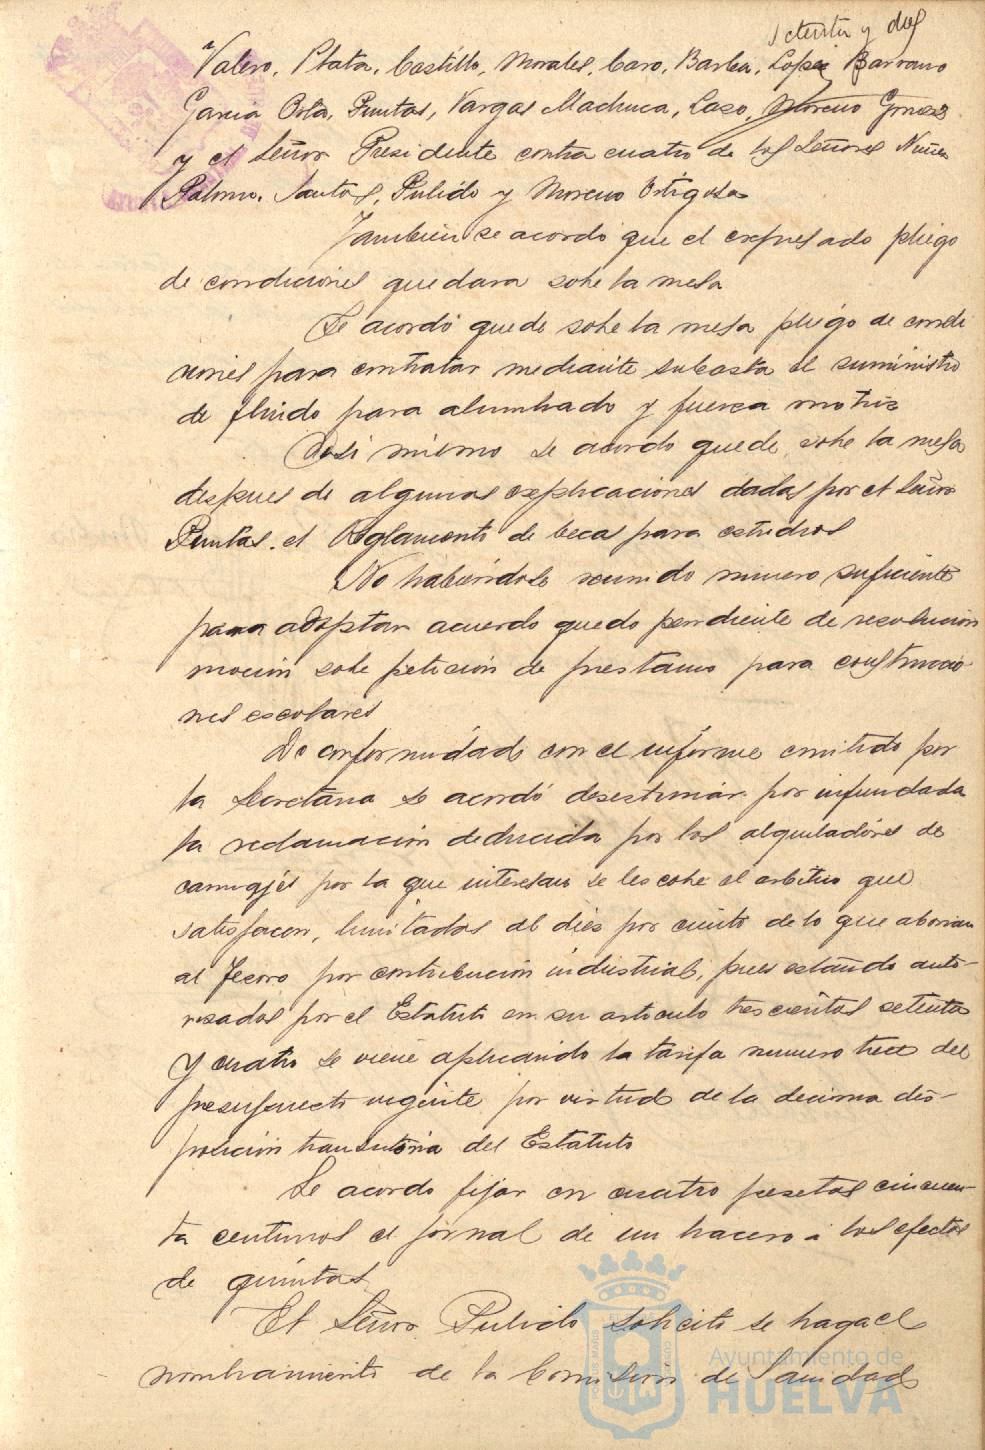 setenta y dos
Valero, Plata, Castillo, Morales, Caro, Barba, Lopez Barrano
Garcia Orta, Puntas, Vargas Machuca, Lazo, Moreno Gomez
y el Señor Presidente contra cuatro de los Señores Nuñez
Palomo, Santos, Pulido y Moreno Ortigosa
Tambien se acordo que el expresado pliego
de condiciones quedara sobe la mesa
Se acordó quede sobe la mesa pliego de condi
ciones para contratar mediante subasta el suministro
de fluido para alumbrado y fuerza motriz
Asi mismo se acordo quede sobe la mesa
despues de algunas explicaciones dadas por el Señor
Puntas, el Reglamento de beca para estudios
No habiendose reunido numero suficiente
para adoptar acuerdo quedo pendiente de resolucion
mocion sobe peticion de prestamo para construccio-
nes escolares
De conformidad con el informe emitido por
la Secretaria se acordó desestimar por infundada
la reclamacion deducida por los alquiladores de
carruajes por la que interesan se les cobe el arbitrio que
satisfacen, limitadas al diez por ciento de lo que abonan
al Tesoro por contribucion industrial, pues estando auto-
rizadas por el Estatuto en su articulo trescientos setenta
y cuatro se viene aplicando la tarifa numero trece del
presupuesto vigente por virtud de la decima dis-
posicion transitoria del Estatuto
Se acordo fijar en cuatro pesetas cincuen-
ta centimos el jornal de un bracero á los efectos
de quintas
El Señor Pulido solicito se haga el
nombramiento de la Comision de Sanidad
Ayuntamiento de
HUELVA